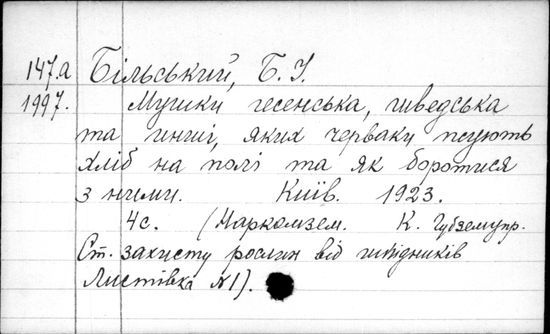 147.а Більський, Б. І.
1997. Мушки гесенська, шведська
та инші, яких черваки псують
хліб на полі та як боротися
з ними. Київ. 1923.
4с. (Наркомзем. К. Губземупр.
Ст. захисту рослин від шкідників
Листівка №1).